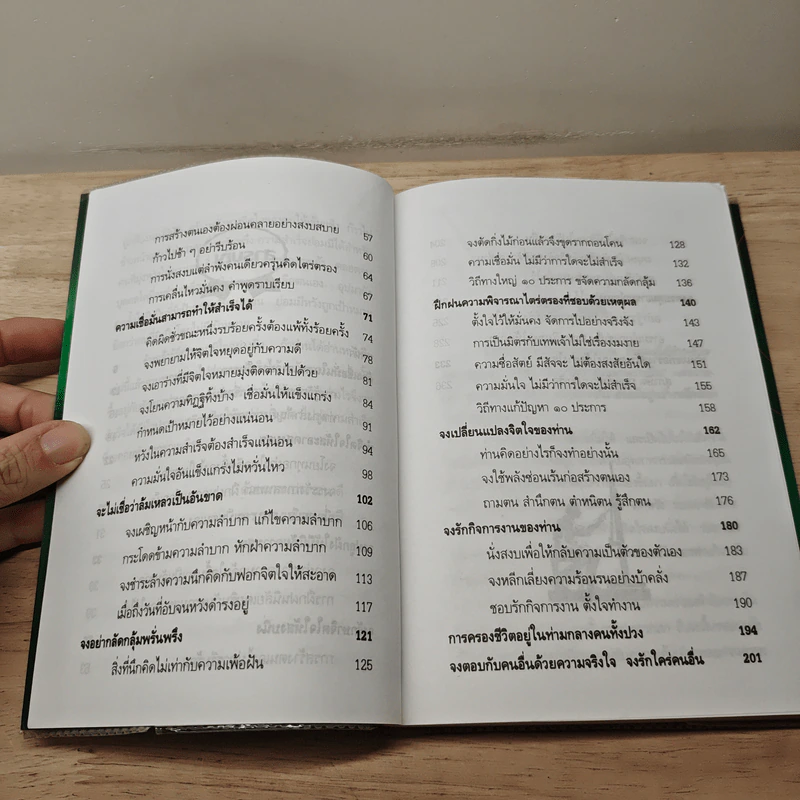 การสร้างตนเองต้องผ่อนคลายอย่างสงบสบาย 57
ก้าวไปช้า ๆ อย่ารีบร้อน 60
การนั่งสงบแต่ลำพังคนเดียวครุ่นคิดไตร่ตรอง 64
การเคลื่นไหวมั่นคง คำพูดราบเรียบ 67
ความเชื่อมั่นสามารถทำให้สำเร็จได้ 71
คิดผิดชั่วขณะหนึ่งรบร้อยครั้งต้องแพ้ทั้งร้อยครั้ง 74
จงพยายามให้จิตใจหยุดอยู่กับความดี 78
จงเอาร่างที่มีจิตใจหมายมุ่งติดตามไปด้วย 81
จงโยนความทิฏฐิทิ้งบ้าง เชื่อมั่นให้แข็งแกร่ง 84
กำหนดเป้าหมายไว้อย่างแน่นอน 91
หวังในความสำเร็จต้องสำเร็จแน่นอน 94
ความมั่นใจอันแข็งแกร่งไม่หวั่นไหว 98
จะไม่เชื่อว่าล้มเหลวเป็นอันขาด 102
จงเผชิญหน้ากับความลำบาก แก้ไขความลำบาก 106
กระโดดข้ามความลำบาก หักฝ่าความลำบาก 109
จงชำระล้างความนึกคิดกับฟอกจิตใจให้สะอาด 113
เมื่อถึงวันที่อับจนหวังดำรงอยู่ 117
จงอย่ากลัดกลุ้มพรั่นพรึง 121
สิ่งที่นึกคิดไม่เท่ากับความเพ้อฝัน 125
จงตัดกิ่งไม้ก่อนแล้วจึงขุดรากถอนโคน 128
ความเชื่อมั่น ไม่มีว่าการใดจะไม่สำเร็จ 132
วิถีทางใหญ่ ๑๐ ประการ ขจัดความกลัดกลุ้ม 136
ฝึกฝนความพิจารณาไตร่ตรองที่ชอบด้วยเหตุผล 140
ตั้งใจไว้ให้มั่นคง จัดการไปอย่างจริงจัง 143
การเป็นมิตรกับเทพเจ้าไม่ใช่เรื่องงมงาย 147
ความซื่อสัตย์ มีสัจจะ ไม่ต้องสงสัยอันใด 151
ความมั่นใจ ไม่มีว่าการใดจะไม่สำเร็จ 155
วิถีทางแก้ปัญหา ๑๐ ประการ 158
จงเปลี่ยนแปลงจิตใจของท่าน 162
ท่านคิดอย่างไรก็จงทำอย่างนั้น 165
จงใช้พลังซ่อนเร้นก่อสร้างตนเอง 173
ถามตน สำนึกตน ตำหนิตน รู้สึกตน 176
จงรักกิจการงานของท่าน 180
นั่งสงบเพื่อให้กลับความเป็นตัวของตัวเอง 183
จงหลีกเลี่ยงความร้อนรนอย่างบ้าคลั่ง 187
ชอบรักกิจการงาน ตั้งใจทำงาน 190
การครองชีวิตอยู่ในท่ามกลางคนทั้งปวง 194
จงตอบกับคนอื่นด้วยความจริงใจ จงรักใคร่คนอื่น 201